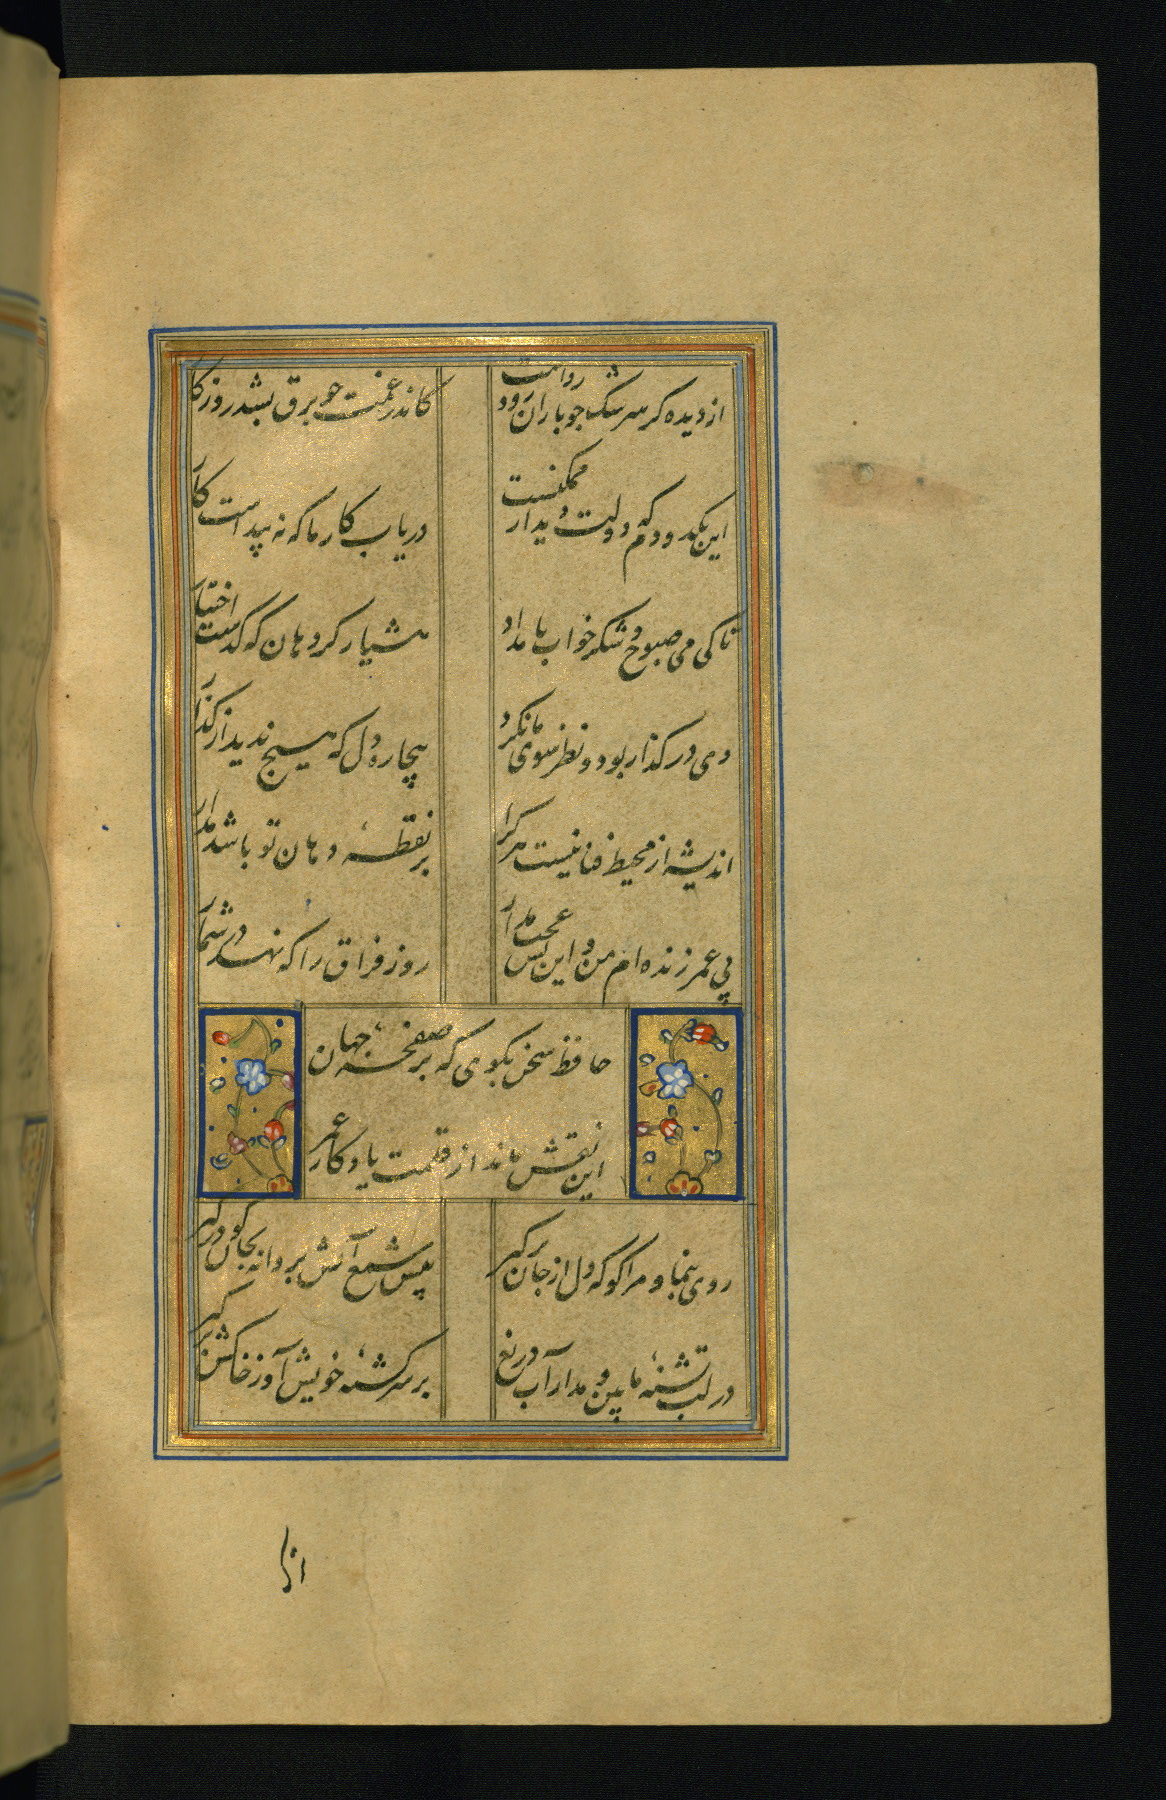 از دیده کر سرشک جو باران رود رواست
کاندر غمت جو برق بشد روزکار
این یکدو دم که دولت دیدار ممکنست
دریاب کار ما که نه پیداست کار
تا کی می صبوح و شکر خواب بامداد
هشیار کرد هان که کذشت اختیار
دی در کذار بود و نظر سوی ما نکرد
بیچاره دل که هیچ ندید از کذار
اندیشه از محیط فنا نیست هر کرا
بر نقطهٔ دهان تو باشد مدار
بی عمر زنده ام من و این بس عجب مدار
روز فراق را که نهد در شمار
حافظ سخن بکوی که بر صفحهٔ جهان
این نقش ماند از قلمت یادکار عمر
روی بنما و مرا کو که دل از جان برکیر
پیش شمع آتش پروانه بجان کو درکیر
در لب تشنهٔ ما بین و مدار آب دریغ
بر سر کشتهٔ خویش آ و ز خاکش برکیر